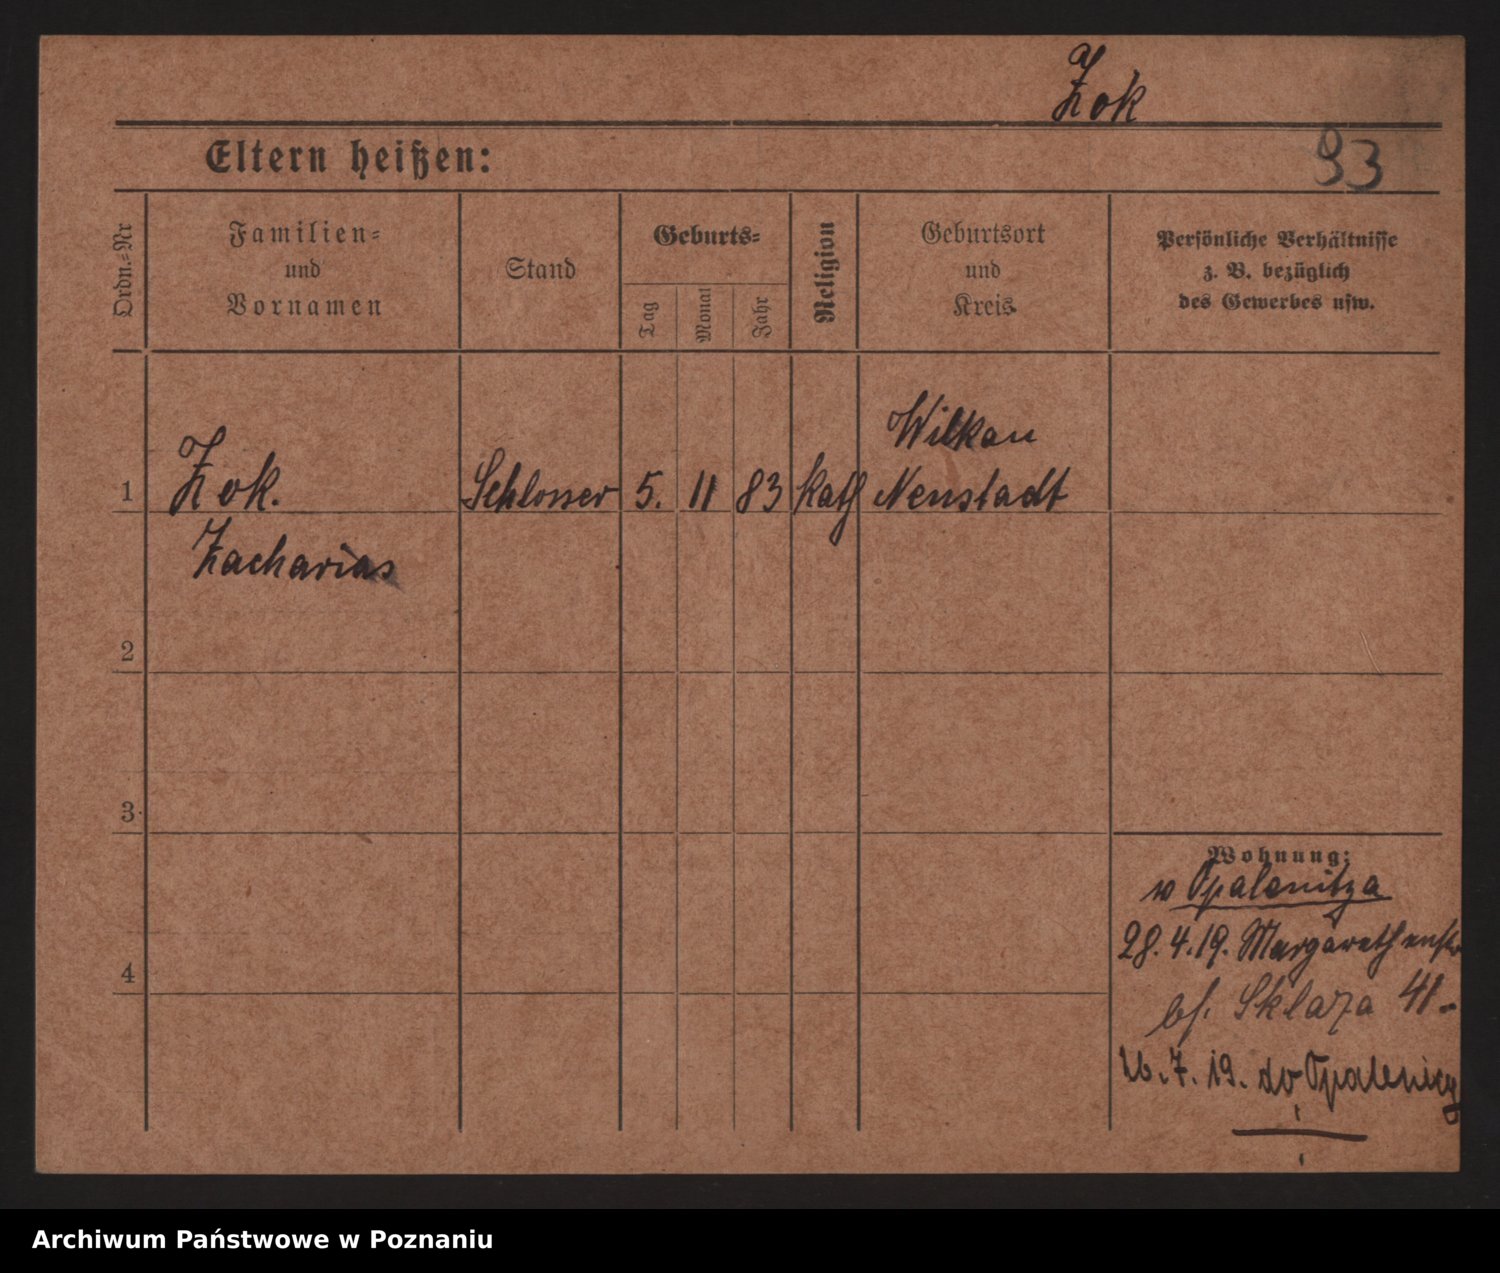 Zok
93
Eltern heißen:
Ordn.-Nr
Familien-
und
Vornamen
Stand
Geburts-
Tag
Monat
Jahr
Religion
Geburtsort
und
Kreis
Persönliche Verhältnisse
z. B. bezüglich
des Gewerbes usw.
Wilkau
1 Zok. Schlosser 5. 11 83 Kath Neustadt
Zacharias
2
3
4
Wohnung:
Opalenitza
28. 4. 19. Margarethenstr
bf. Sklaza 41.
26. 7. 19. do Opalenicy
Archiwum Państwowe w Poznaniu